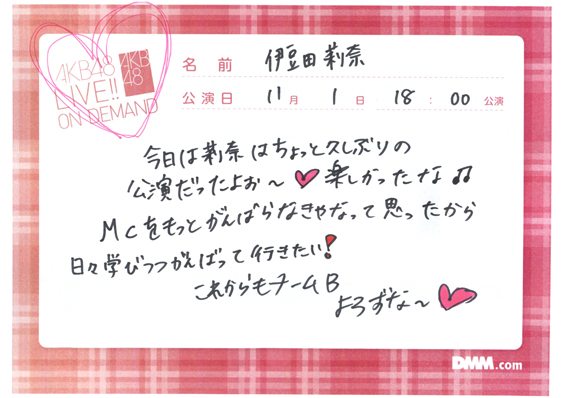 AKB48
LIVE!!
ON DEMAND
AKB
48
名 前 伊豆田莉奈
公演日 11月 1日 18:00 公演
今日は莉奈はちょっと久しぶりの
公演だったよぉ〜♥楽しかったな♫
MCをもっとがんばらなきゃなって思ったから
日々学びつつがんばって行きたい!
これからもチームB
よろずな〜♥
DMM.com